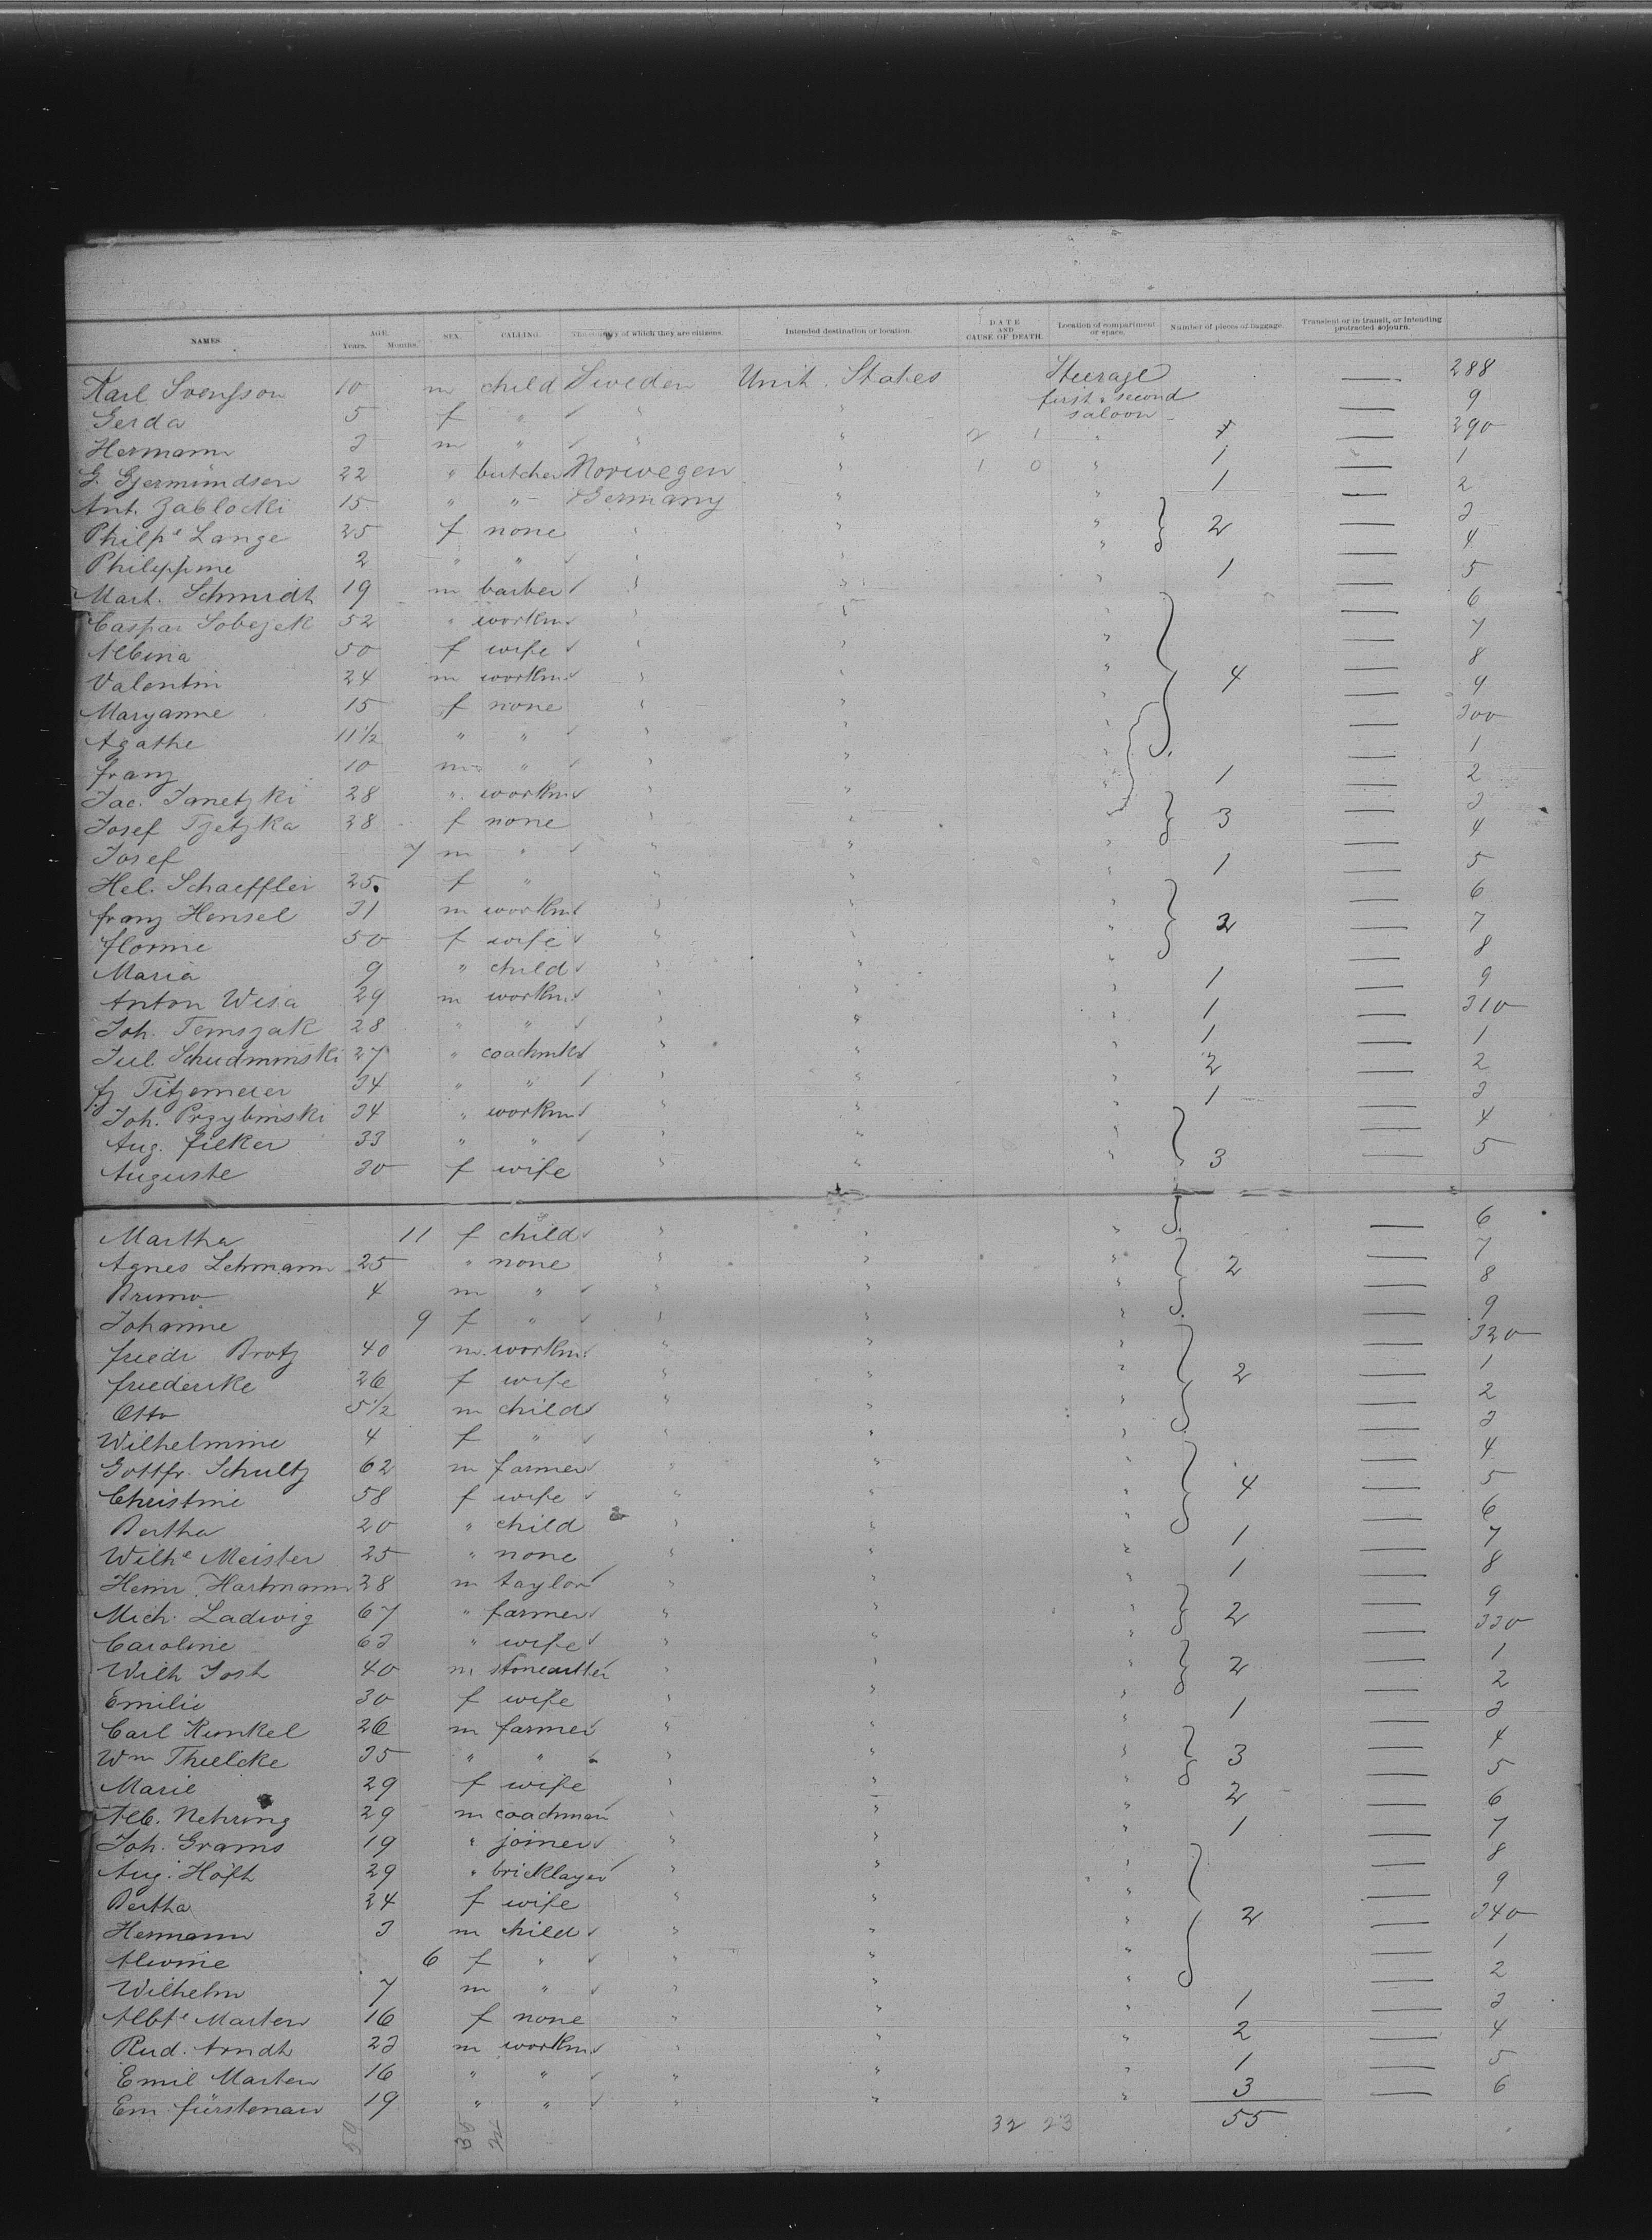 NAMES. AGE. Years. Months. SEX. CALLING. The country of which they are citizens. Intended destination or location. DATE AND CAUSE OF DEATH. Location of compartment or space. Number of pieces of baggage. Transient or in transit, or intending protracted sojourn.
Karl Svensson 10 m child Sweden Unit. States Steerage — 288
first & second saloon
Gerda 5 f " " " — 9
Hermann 3 m " " " 2 1 " 1 — 290
G. Gjermundsen 22 " butcher Norwegen " 1 0 " 1 — 1
Ant. Zablocki 15 " " Germany " " 1 — 2
Philpe Lange 25 f none " " " 2 — 3
Philippine 2 " " " " " — 4
Mart. Schmidt 19 m barber " " " 1 — 5
Caspar Sobezek 52 " workm " " " — 6
Albina 50 f wife " " " — 7
Valentin 24 m workm " " " 4 — 8
Maryanne 15 f none " " " — 9
Agathe 11 1/2 " " " " " — 300
Franz 10 m " " " " — 1
Jac. Janetzki 28 " workm " " " 1 — 2
Josef Tzetzka 28 f none " " " 3 — 3
Josef 7 m " " " " — 4
Hel. Schaeffler 25 f " " " " 1 — 5
Franz Hensel 31 m workm " " " — 6
Florine 50 f wife " " " 2 — 7
Maria 9 " child " " " — 8
Anton Wisa 29 m workm " " " 1 — 9
Joh. Temszak 28 " " " " " 1 — 310
Jul. Schudminski 27 " coachmk " " " 1 — 1
Fz Titzemeier 34 " " " " " 2 — 2
Joh. Przybinski 34 " workm " " " 1 — 3
Aug. Filker 33 " " " " " — 4
Auguste 30 f wife " " " 3 — 5
Martha 11 f child " " " — 6
Agnes Lehmann 25 " none " " " 2 — 7
Bruno 4 m " " " " — 8
Johanne 9 f " " " " — 9
Friedr Brotz 40 m workm " " " — 320
Friederike 26 f wife " " " 2 — 1
Otto 5 1/2 m child " " " — 2
Wilhelmine 4 f " " " " — 3
Gottfr. Schultz 62 m farmer " " " — 4
Christine 58 f wife " " " 4 — 5
Bertha 20 " child " " " — 6
Wilhe Meister 25 " none " " " 1 — 7
Heinr. Hartmann 28 m taylor " " " 1 — 8
Mich. Ladwig 67 " farmer " " " 2 — 9
Caroline 63 " wife " " " — 330
Wilh Jost 40 m stonecutter " " " 2 — 1
Emilie 30 f wife " " " — 2
Carl Runkel 26 m farmer " " " 1 — 3
Wm Thielcke 35 " " " " " 3 — 4
Marie 29 f wife " " " — 5
Alb. Nehring 29 m coachman " " " 2 — 6
Joh. Grams 19 " joiner " " " 1 — 7
Aug. Höft 29 " bricklayer " " " — 8
Bertha 24 f wife " " " — 9
Hermann 3 m child " " " 2 — 340
Alwine 6 f " " " " — 1
Wilhelm 7 m " " " " — 2
Albte Marten 16 f none " " " 1 — 3
Rud. Arndt 23 m workm " " " 2 — 4
Emil Marten 16 " " " " " 1 — 5
Em. Fürstenau 19 " " " " " 3 — 6
32 23 55